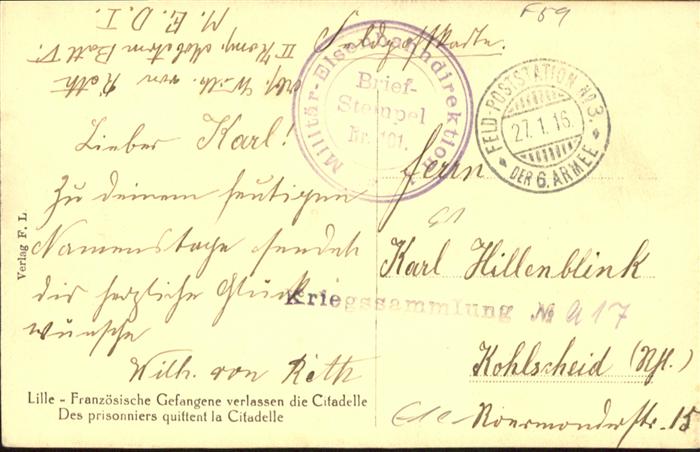 F59
Feldpostkarte.
Abs. Wilh. von Roth
II Komp. Arbeiter Batl. V.
M. E. D. I
Militär-Eisenbahndirektion 1.
Brief-
Stempel
Nr. 101.
FELD-POSTSTATION No 3.
27.1.16.
DER 6. ARMEE
Lieber Karl!
Zu deinem heutigen
Namenstage sendet
dir herzliche Glück-
wünsche
Wilh. von Roth
Herrn
Karl Hillenblink
Kriegssammlung № a 17
Kohlscheid (Rhl.)
Roermonderstr. 15
Verlag F. L.
Lille – Französische Gefangene verlassen die Citadelle
Des prisonniers quittent la Citadelle